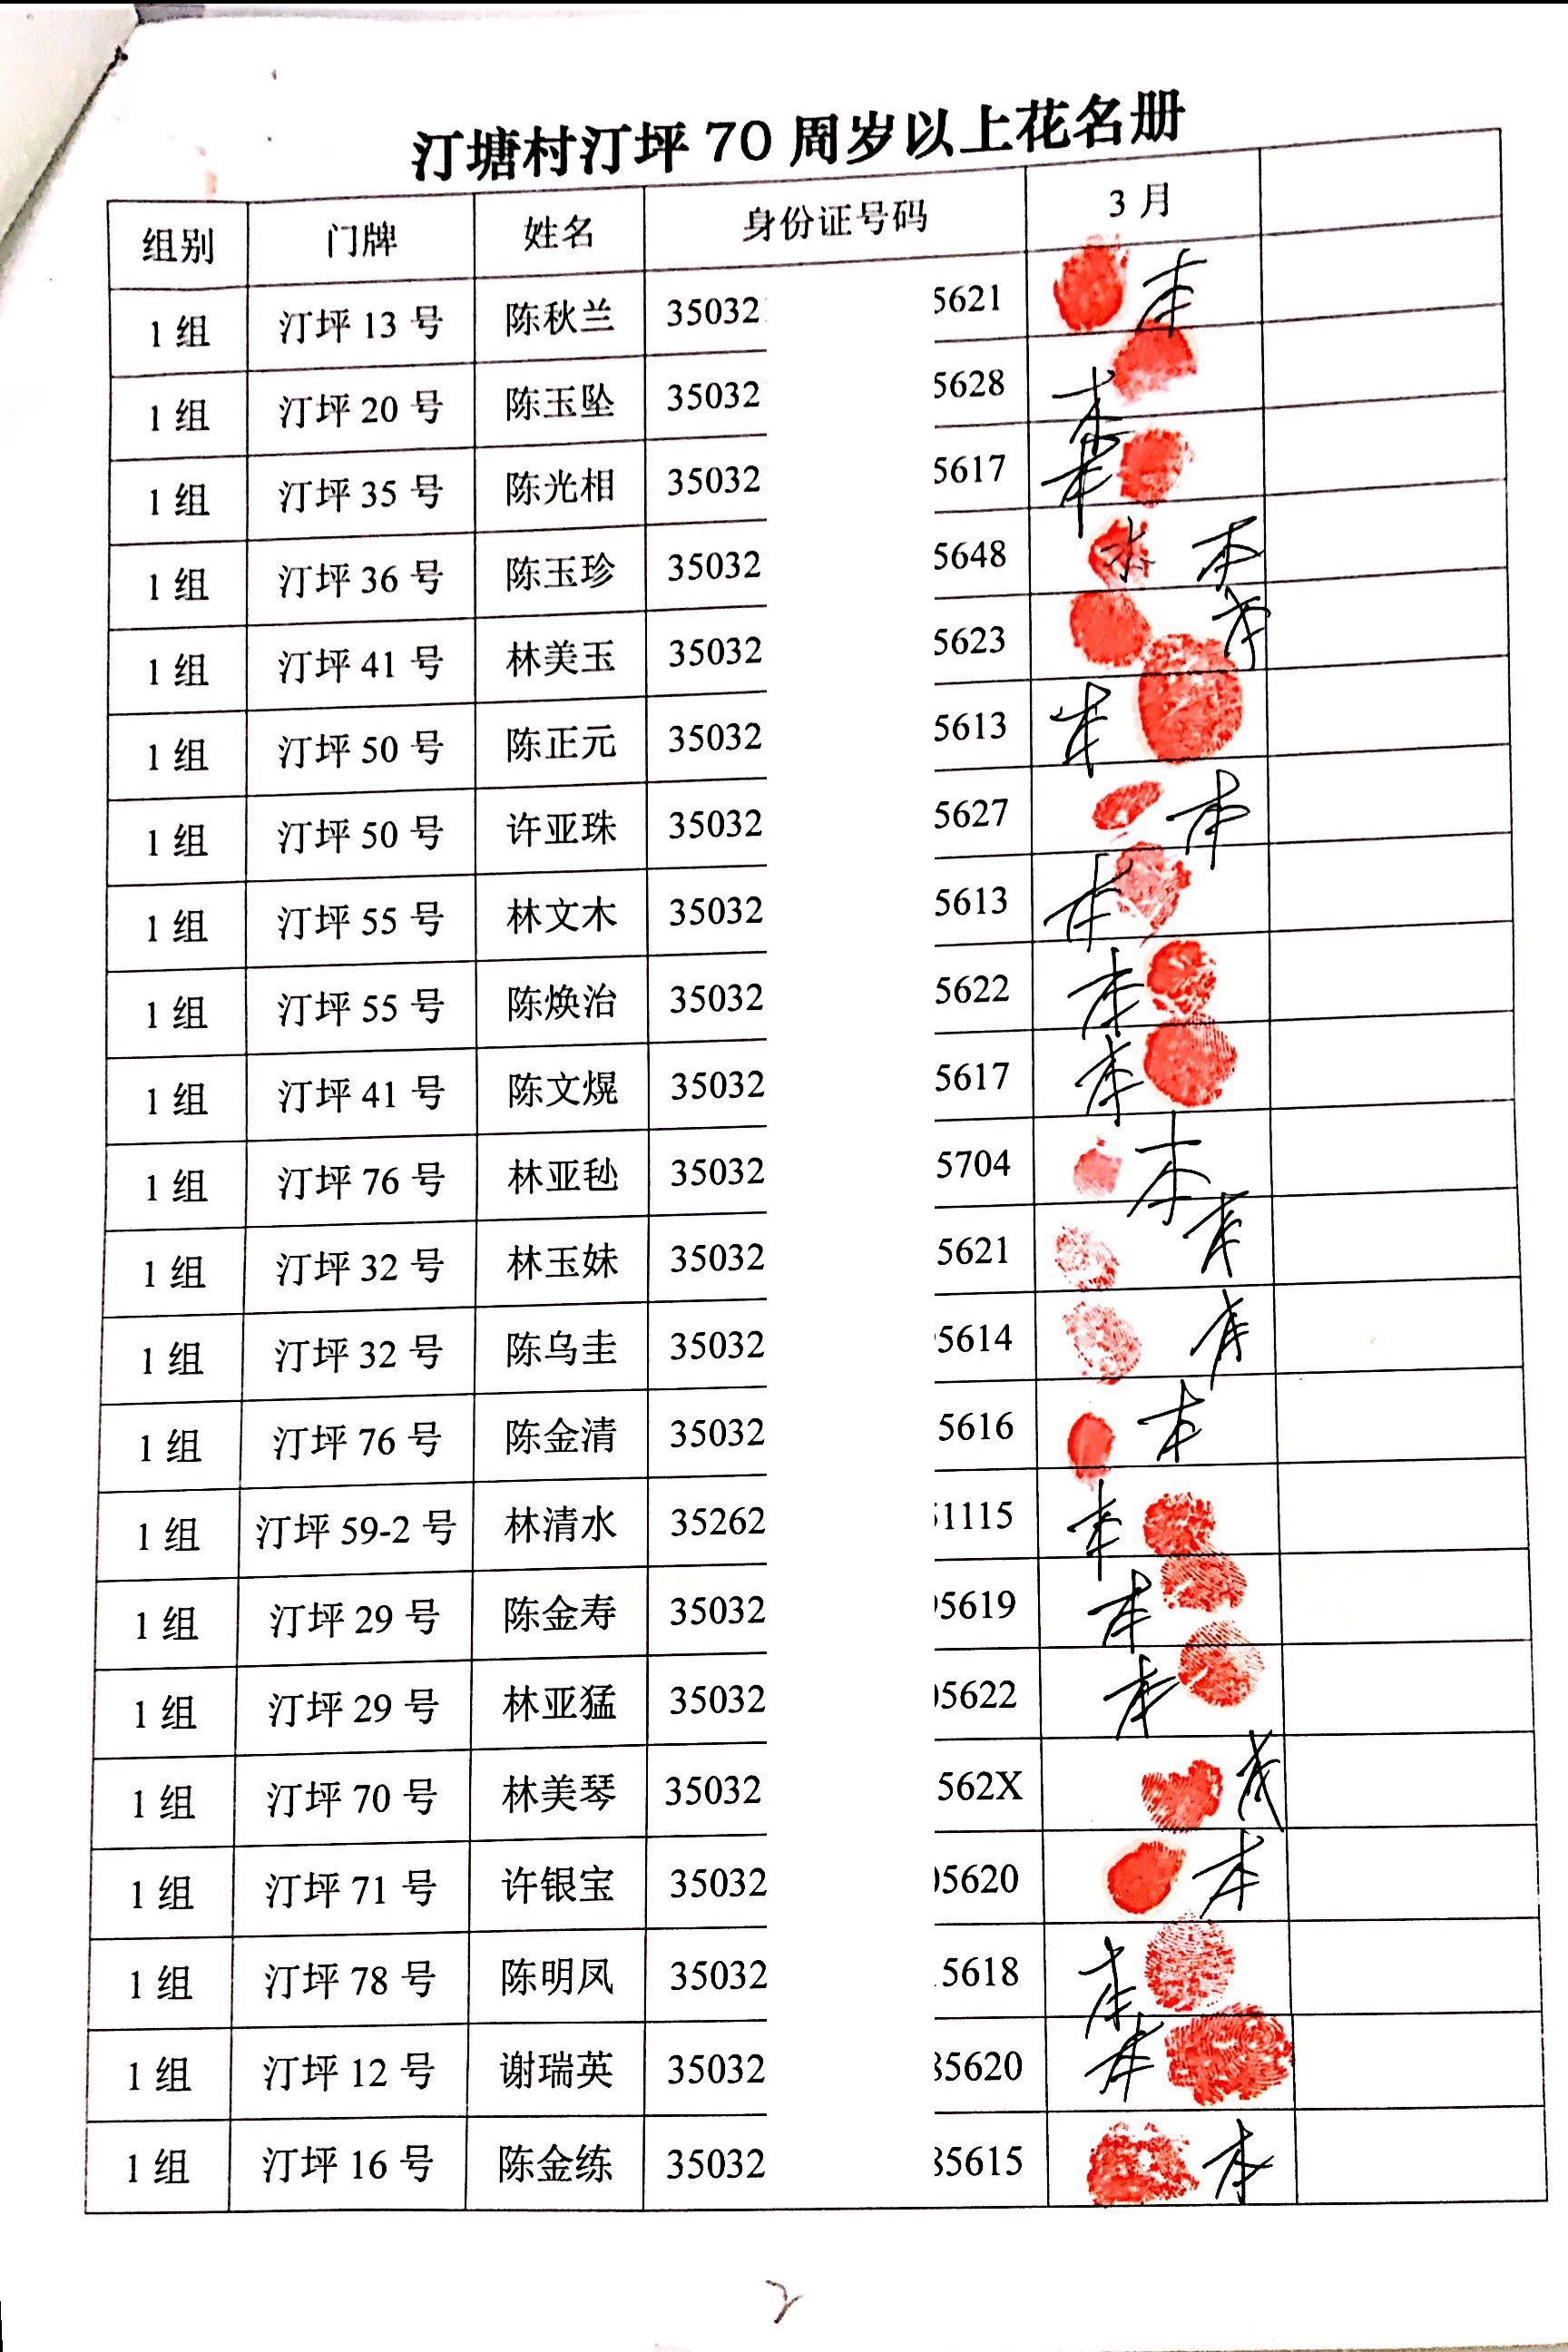 汀塘村汀坪 70 周岁以上花名册
组别 门牌 姓名 身份证号码 3 月
1 组 汀坪 13 号 陈秋兰 35032 5621 本
1 组 汀坪 20 号 陈玉坠 35032 5628 本
1 组 汀坪 35 号 陈光相 35032 5617 本
1 组 汀坪 36 号 陈玉珍 35032 5648 本 本
1 组 汀坪 41 号 林美玉 35032 5623 本
1 组 汀坪 50 号 陈正元 35032 5613 本
1 组 汀坪 50 号 许亚珠 35032 5627 本
1 组 汀坪 55 号 林文木 35032 5613 本
1 组 汀坪 55 号 陈焕治 35032 5622 本
1 组 汀坪 41 号 陈文熀 35032 5617 本
1 组 汀坪 76 号 林亚 35032 5704 本
1 组 汀坪 32 号 林玉妹 35032 5621 本
1 组 汀坪 32 号 陈乌圭 35032 5614 本
1 组 汀坪 76 号 陈金清 35032 5616 本
1 组 汀坪 59-2 号 林清水 35262 1115 本
1 组 汀坪 29 号 陈金寿 35032 5619 本
1 组 汀坪 29 号 林亚猛 35032 5622 本
1 组 汀坪 70 号 林美琴 35032 562X 本
1 组 汀坪 71 号 许银宝 35032 5620 本
1 组 汀坪 78 号 陈明凤 35032 5618 本
1 组 汀坪 12 号 谢瑞英 35032 5620 本
1 组 汀坪 16 号 陈金练 35032 5615 本
2